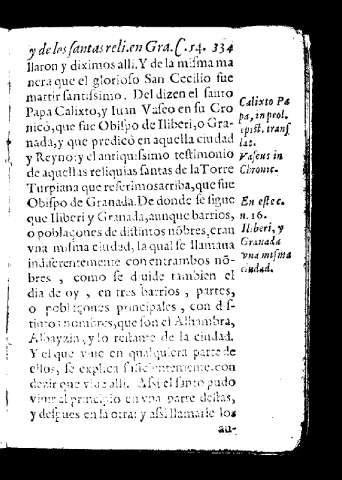 y de los santas reli. en Gra. C. 14. 334
llaron y diximos alli. Y de la misma ma
nera que el glorioso San Cecilio fue
martir santissimo. Del dizen el santo
Papa Calixto, y Iuan Vaseo en su Cro
nicó, que fue Obispo de Iliberi, o Gra-
nada, y que predicó en aquella ciudad
y Reyno: y el antiquissimo testimonio
de aquellas reliquias santas de la Torre
Turpiana que referimos arriba, que fue
Obispo de Granada. De donde se sigue
que Iliberi y Granada, aunque barrios,
o poblaçones de distintos nõbres, eran
vna misma ciudad, la qual se llamaua
indiferentemente con entrambos nõ-
bres, como se diuide tambien el
dia de oy, en tres barrios, partes,
o poblaçones principales, con dis-
tintos nombres, que son el Alhambra,
Albayzin, y lo restante de la ciudad.
Y el que viue en qualquiera parte de
ellos, se explica suficientemente con
dezir que viue alli. Assi el santo pudo
viuir al principio en vna parte destas,
y despues en la otra: y assi llamarle los
au-
Calixto Pa
pa, in prol.
epist. transf
lat.
Vaseus in
Chronic.
En este c.
n. 16.
Iliberi, y
Granada
vna misma
ciudad.